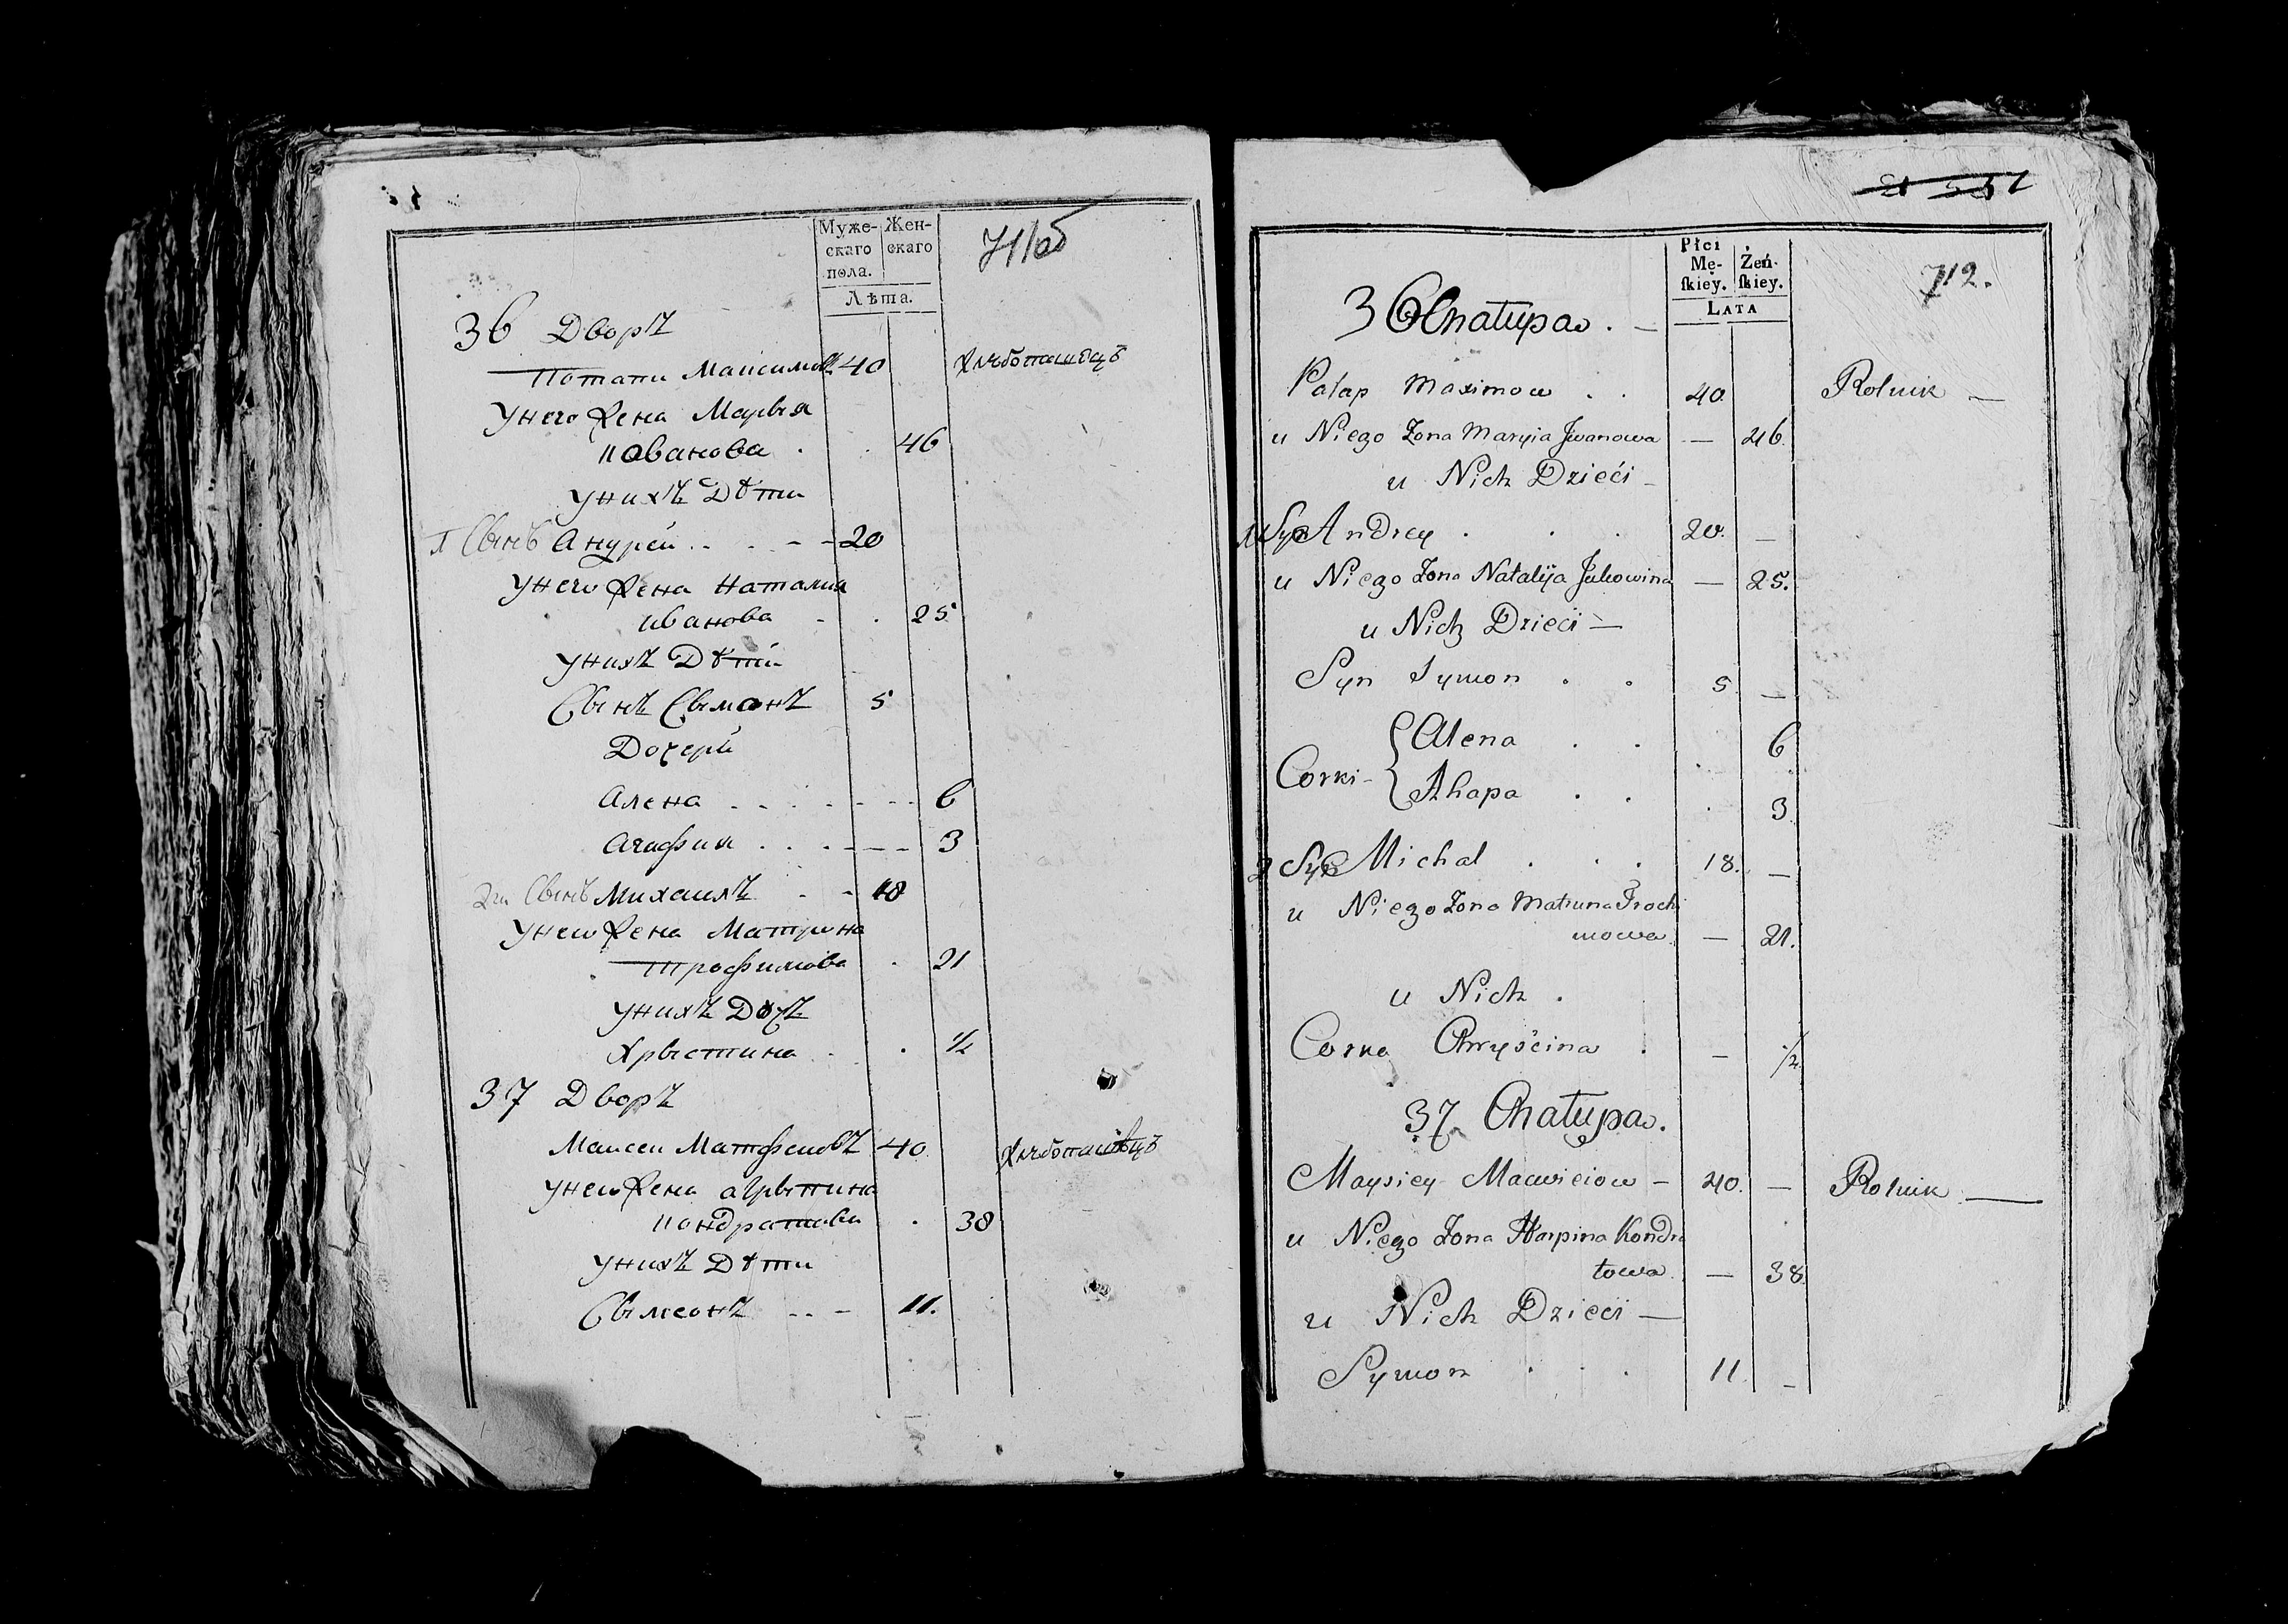 Муже-
скаго
пола.
Жен-
скаго
Лѣта.
711об
36 Дворъ
Потапи Максимовъ 40 Хлѣбопашецъ
У него Жена Марья
Иванова . . 46
У нихъ Дѣти
1 Сынъ Андрей . . . - - 20
У него Жена Наталия
Иванова - . 25
У нихъ Дѣти
Сынъ Сымонъ 5
Дочери
Алена . . . . - - - 6
Агафия . . . - - - 3
2й Сынъ Михаилъ - - 18
У него Жена Матрона
Трофимова . 21
У нихъ Дочъ
Хрыстина . . ½
37 Дворъ
Маисеи Матфеиовъ 40 Хлѣбопашецъ
У него Жена агрыпина
Кондратова . 38
У нихъ Дѣти
Сымеонъ . . - 11.
Płci
Mę-
skiey.
Żeń-
skiey.
LATA
712.
36 Chałupa . -
Patap Maximow . . 40 Rolnik -
u Niego Zona Maryia Jwanowa - 46.
u Nich Dzieći -
1 Syn Andrey . . . 20. -
u Niego Zona Natalija - 25.
u Nich Dzieci -
Syn Symon . . 5. -
Corki - { Alena . . 6
Ahapa . . . 3
2 Syn Michal . . . 18. -
u Niego Zona Matruna Trochi
mowa. - 21.
u Nich .
Corka Chryścina . - ½
37. Chałupa.
Maysiey Macwieiow - 40. - Rolnik -
u Niego Zona Harpina Kondra
towa. - 38.
u Nich Dzieci -
Symon . . . 11. -